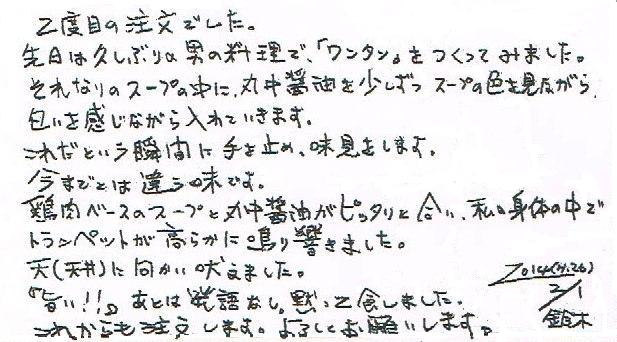 2度目の注文でした。
先日は久しぶりの男の料理で、「ワンタン」をつくってみました。
それなりのスープの中に、丸中醤油を少しずつ スープの色を見ながら、
匂いを感じながら入れていきます。
これだという瞬間に手を止め、味見をします。
今までとは違う味です。
鶏肉ベースのスープと丸中醤油がピッタリと合い、私の身体の中で
トランペットが高らかに鳴り響きました。
天(天井)に向かい吠えました。
『旨い!!』あとは発語なし。黙って食しました。
これからも注文します。よろしくお願いします。
2014(H.26)
2/1
鈴木